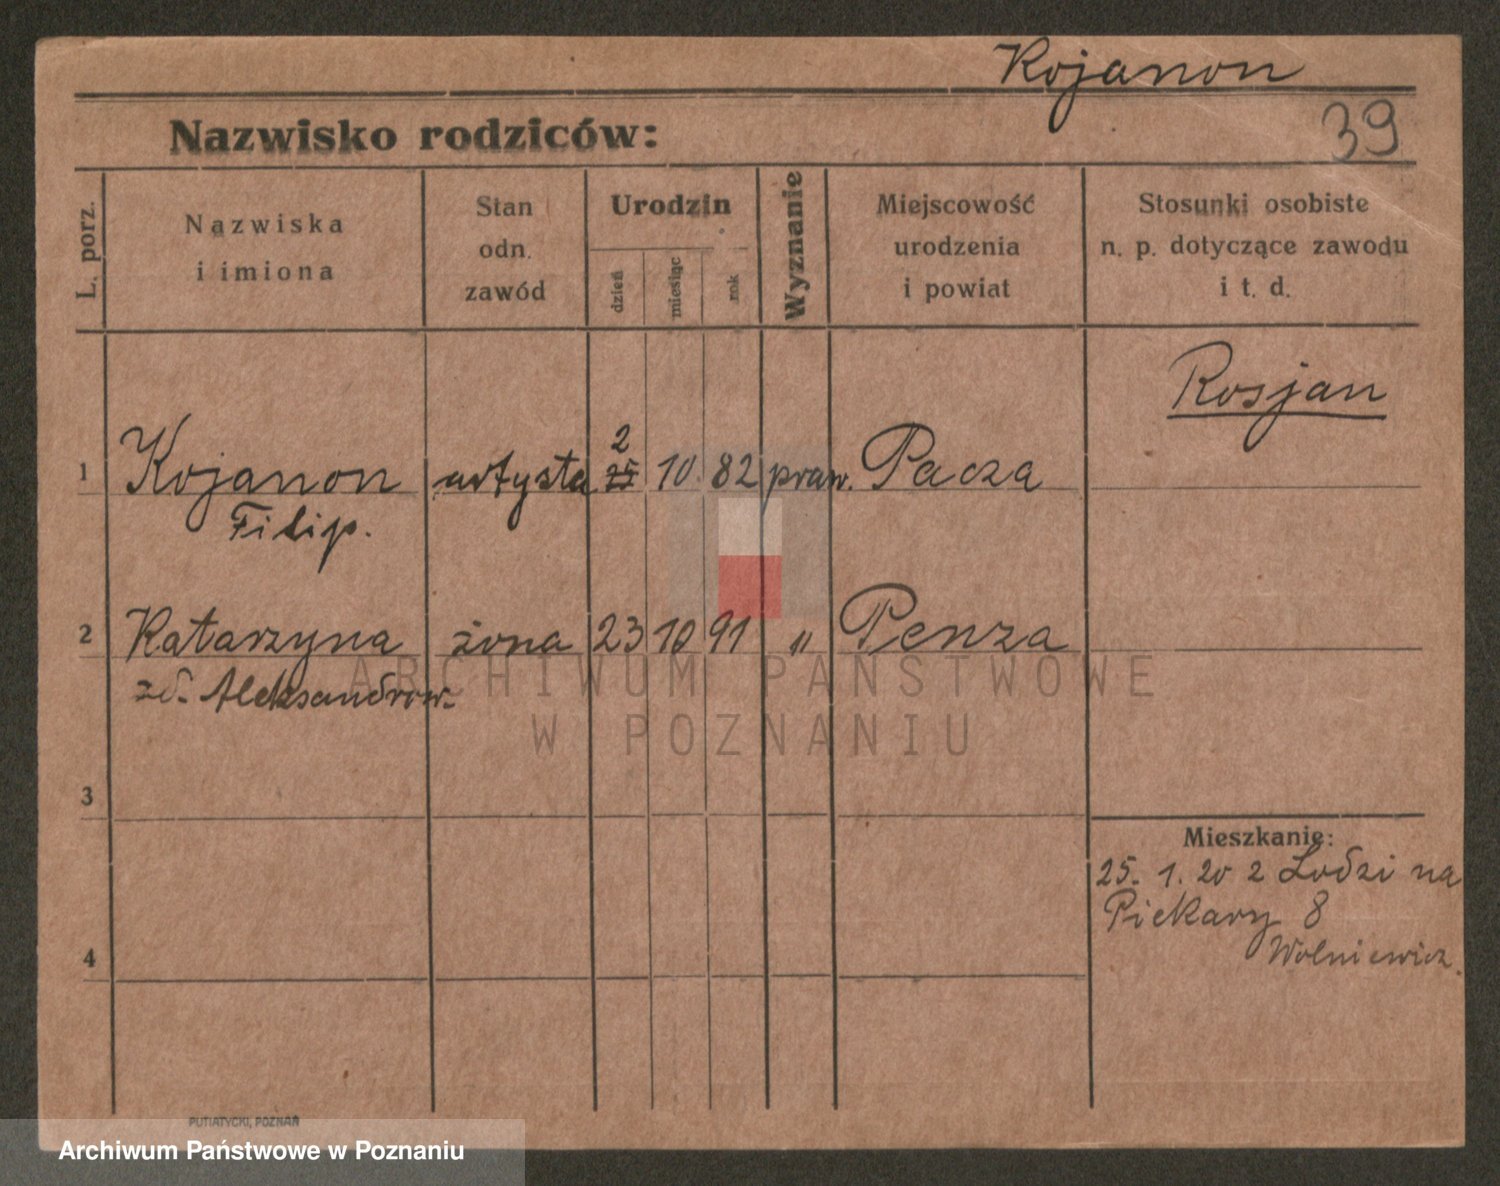 Kojanon
39
Nazwisko rodziców:
L. porz.
Nazwiska
i imiona
Stan
odn.
zawód
Urodzin
dzień
miesiąc
rok
Wyznanie
Miejscowość
urodzenia
i powiat
Stosunki osobiste
n. p. dotyczące zawodu
i t. d.
Rosjan
2
1 Kojanon artysta 25 10 82 praw. Pacza
Filip.
2 Katarzyna żona 23 10 91 " Penza
zd. Aleksandrow.
ARCHIWUM PAŃSTWOWE
W POZNANIU
3
Mieszkanie:
25. 1. 20 z Lodzi na
Piekary 8
Wolniewicz.
4
PUTIATYCKI, POZNAŃ
Archiwum Państwowe w Poznaniu